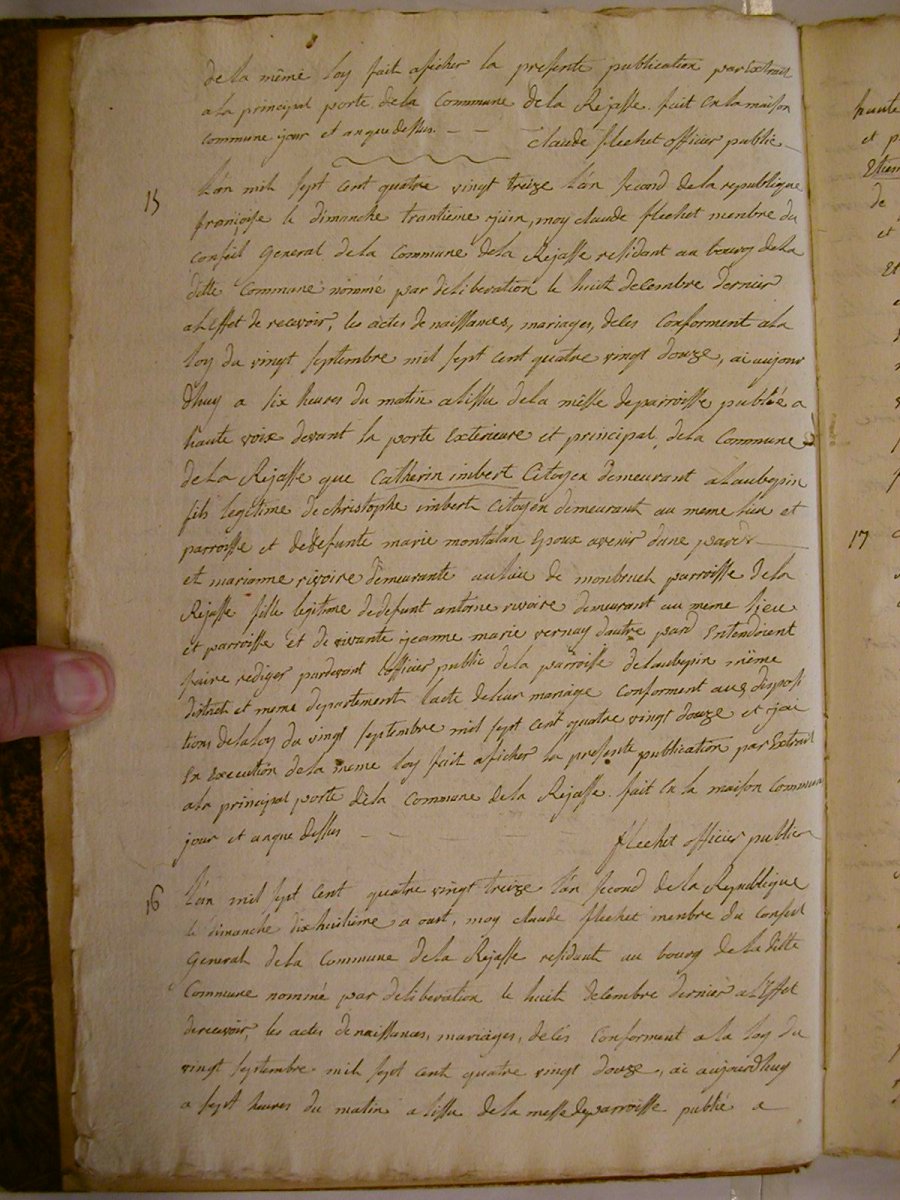 de la même loy fait aficher la presente publication par Extrait
a la principal porte de la Commune de la Rejasse. fait en la maison
commune jour et an que dessus. claude flechet officier public
15 L'an mil sept cent quatre vingt treize L'an second de la republique
françoise le dimanche trantieme juin, moy claude flechet menbre du
conseil General de la Commune de la Rejasse residant au bourg de la
ditte Commune nommé par deliberation le huit decembre dernier
a L'effet de recevoir, les actes de naissances, mariages, decès Conforment a la
loy du vingt septembre mil sept cent quatre vingt douze, ai aujour
d'huy a six heures du matin a lissu de la messe de parroisse publié a
haute voix devant la porte Exterieure et principal de la Commune
de la Rejasse que Catherin imbert Citoyen demeurant a Laubepin
fils legitime de christophe imbert Citoyen demeurant au meme lieu et
parroisse et de defunte marie montalan Epoux avenir d'une pard
et marianne rivoire demeurante au lieu de monbruch parroisse de la
Rejasse fille legitime de defunt antoine rivoire demeurant au meme lieu
et parroisse et de vivante jeanne marie vernay d'autre pard Entendoient
faire rediger pardevant L'officier public de la parroisse de Laubepin même
district et meme departement l'acte de leur mariage Conforment aux disposi
tions de la loy du vingt septembre mil sept cent quatre vingt douze et j'ai
En Execution de la meme loy fait aficher la presente publication par Extrait
a la principal porte de la Commune de la Rejasse. fait en la maison Commune
jour et an que dessus flechet officier public
16 L'an mil sept Cent quatre vingt treize L'an second de la Republique
le dimanche dixhuitième aoust, moy claude flechet menbre du Conseil
General de la Commune de la Rejasse residant au bourg de la ditte
Commune nommé par deliberation le huit decembre dernier a L'effet
de recevoir, les actes de naissances, mariages, decès Conforment a la loy du
vingt septembre mil sept cent quatre vingt douze, ai aujourd'huy
a sept heures du matin a lissu de la messe de parroisse publié a
haute
et
Etien
de
et
Et
17